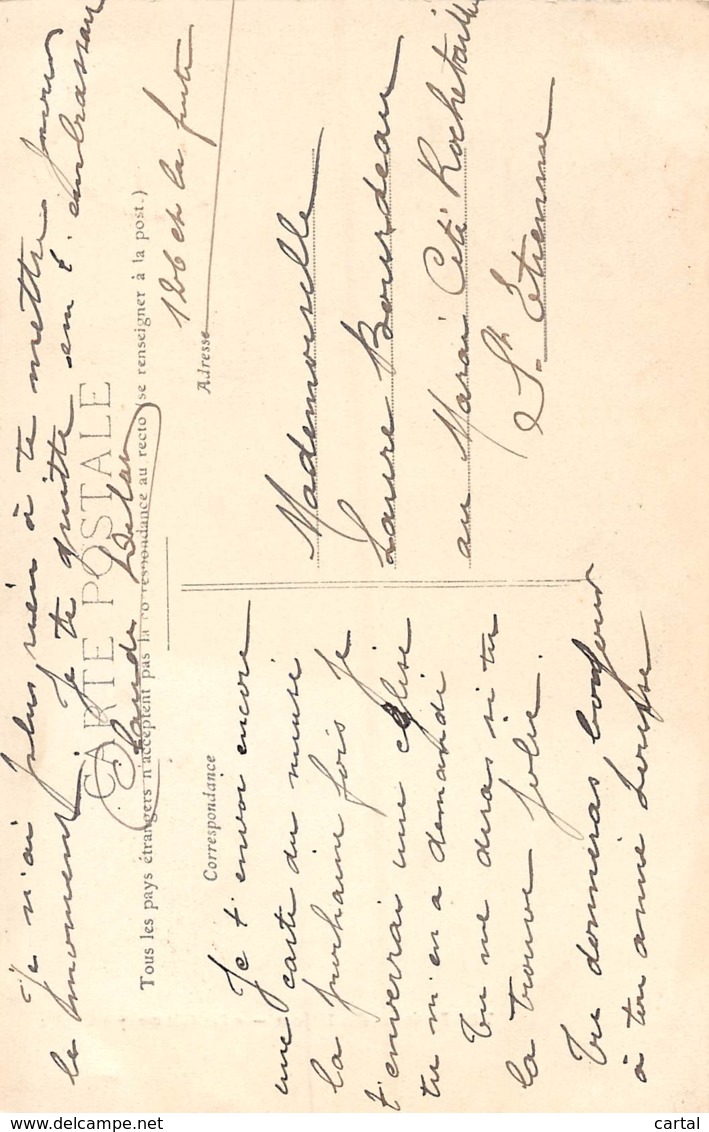 Je n'ai plus rien à te mettre pour
le moment. Je te quitte en t'embrassant
CARTE POSTALE
Tous les pays étrangers n'acceptent pas la correspondance au recto (se renseigner à la post.)
Correspondance
Je t'envoi encore
une carte du musé
la prochaine fois je
t'enverrai une église
tu m'en a demandé
Tu me diras si tu
la trouve jolie.
Tu donneras bonjour
à ton amie Louise
Adresse
126 et la
Mademoiselle
Laure Bourdeau
au Marai Cité Rochetaillé
St. Étienne
www.delcampe.net
cartal